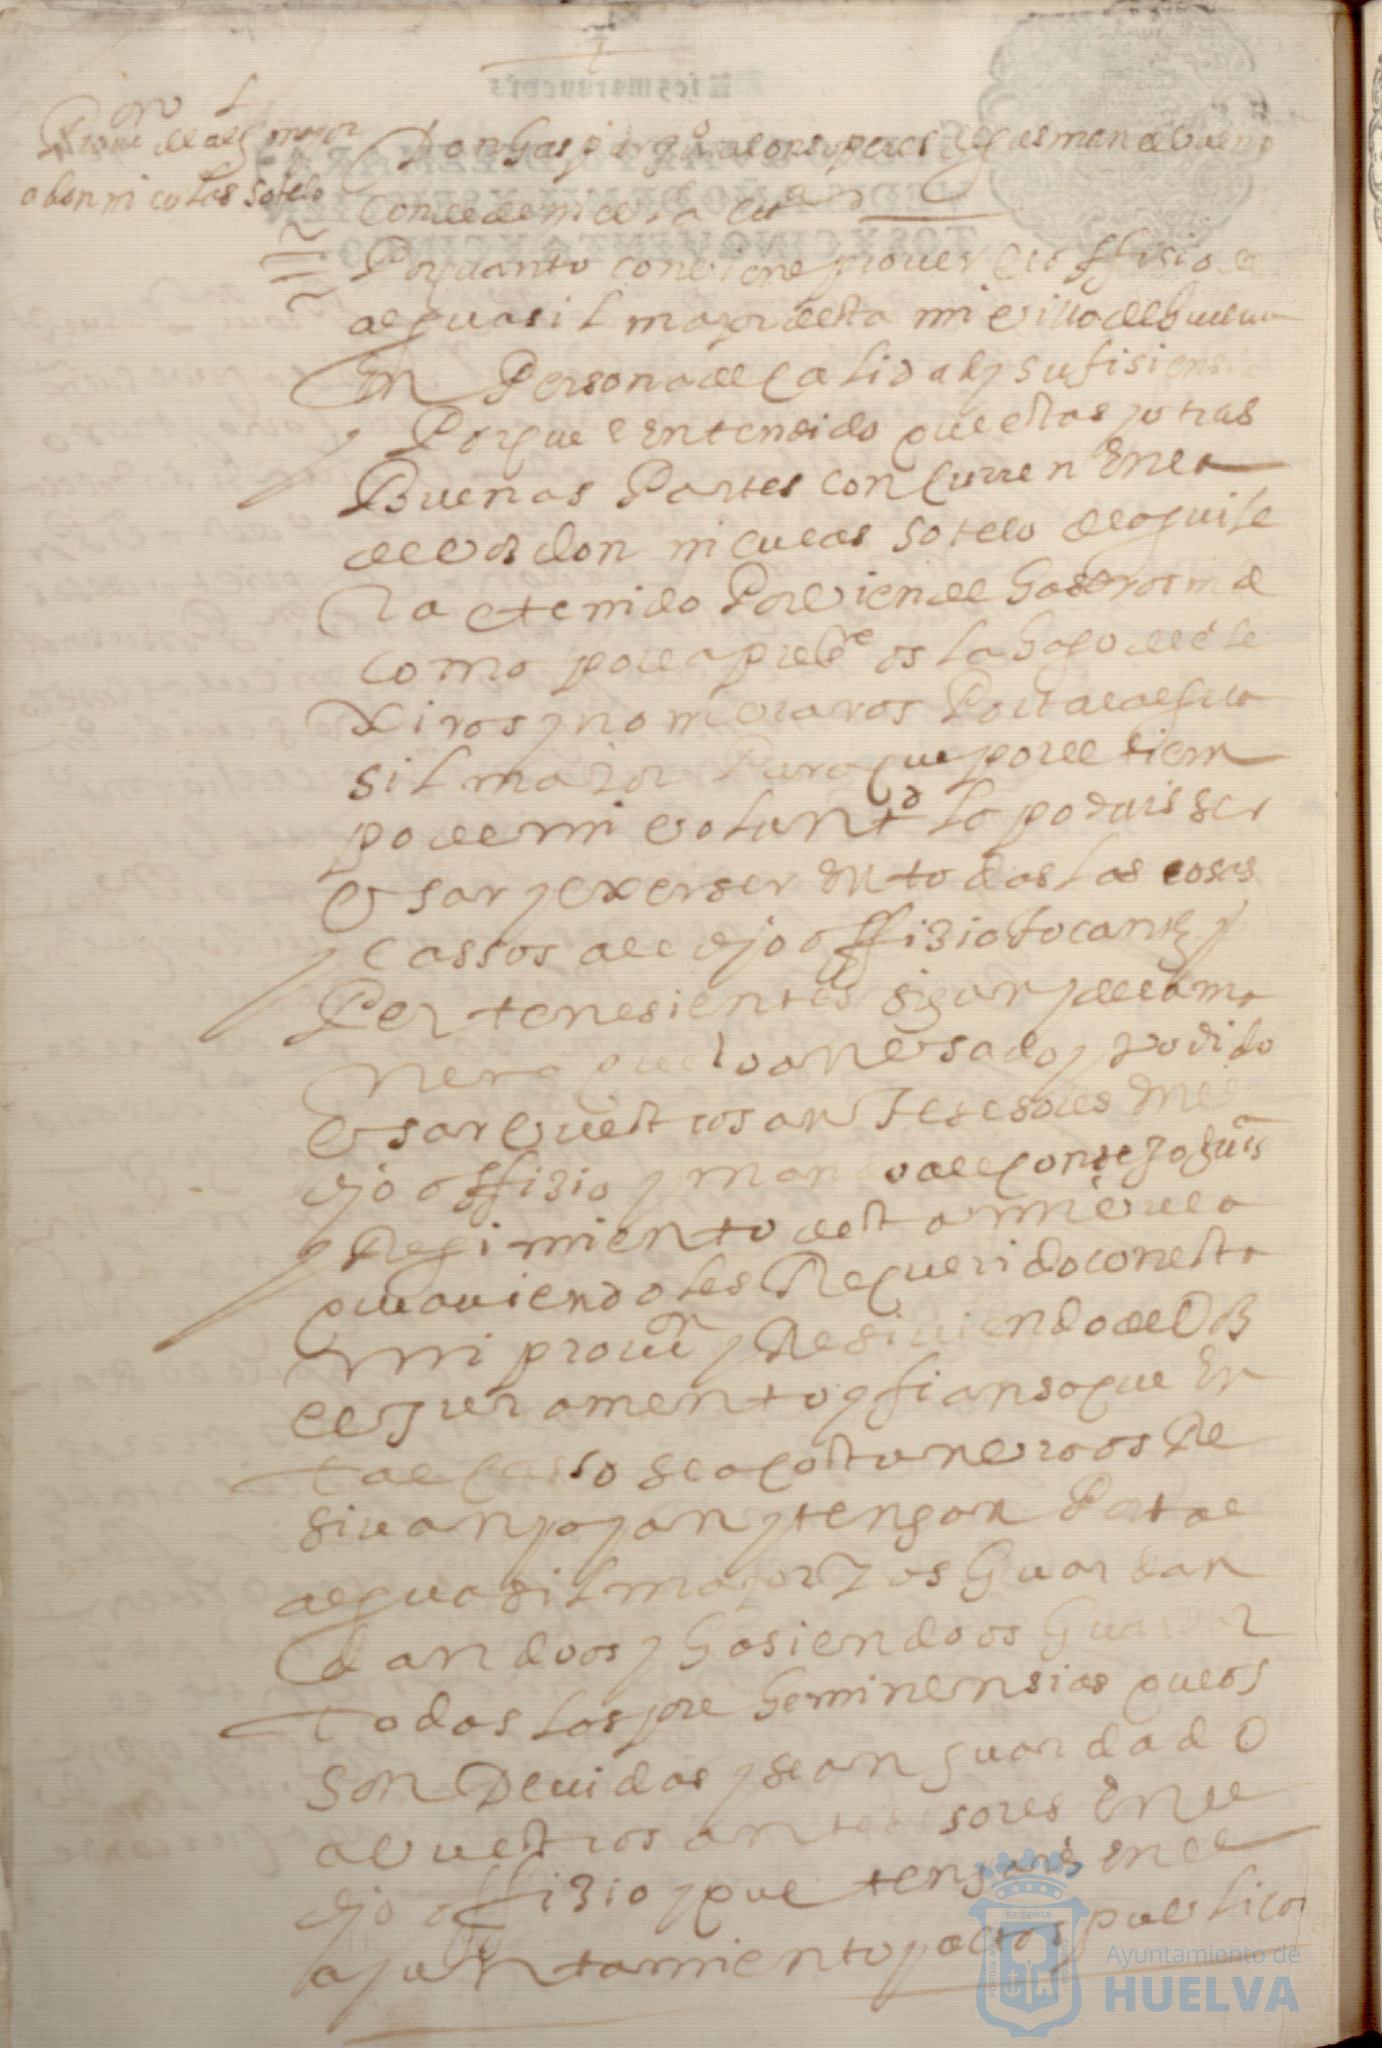 Prouon de alg.l mayor
a don niculas sotelo
Don Gaspar Juo alonso peres de gusman el bueno
conde de niebla etta
Porquanto conviene prover el offisio de
alguasil mayor desta mi villa de huelva
En Persona de calidad y sufisiensia
y Porque e entendido que estas y otras
Buenas Partes concurren En la
de vos don niculas sotelo de aguile
Ra e tenido Por vien de haseros md
como por la preste os la hago de ele
Xiros y nombraros Por tal algua
sil mayor Para que por el tiem
po de mi voluntd lo podais ser
Vsar y exerser En todas las cosas
y cassos al djo offizio tocantes y
Pertenesientes sigun y de la ma
nera que lo an vsado y podido
Vsar vuestros antesesores En el
djo offizio y mando al consejo Justa
y Regimiento desta mi villa
que aviendoles Requerido con esta
mi prouon y Resiviendo de Vos
el Juramento y fiansa que En
tal casso se acostumbra os Re
sivan y ayan y tengan Por tal
alguasil mayor y os Guardan
dandoos y hasiendoos Guardar
todas las preheminensias que os
son Devidas y sean guardado
a vuestros antesesores En el
djo offizio y que tengais En el
ayuntamiento y actos publicos
Ayuntamiento de
HUELVA